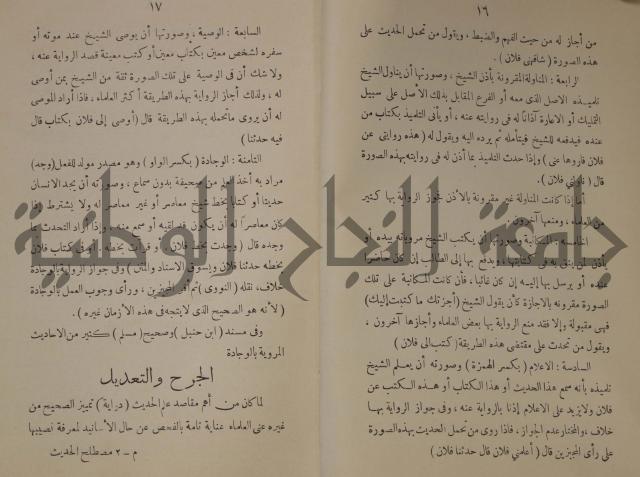 ١٦
من أجاز له من حيث الفهم والضبط ، ويقول من تحمل الحديث على
هذه الصورة ( شافهنى فلان ) .
الرابعة : المناولة المقرونة بأذن الشيخ ، وصورتها أن يناول الشيخ
تلميذه الاصل الذى معه أو الفرع المقابل بذلك الأصل على سبيل
التمليك أو الاعارة آذانا له فى روايته عنه ، أو يأتى التلميذ بكتاب من
عنده فيدفعه للشيخ فيتأمله ثم يرده اليه ويقول له ( هذه روايتى عن
فلان فاروها عنى ) وإذا حدث التلميذ بما أذن له فى روايته بهذه الصورة
قال ( ناولنى فلان ) .
أما إذا كانت المناولة غير مقرونة بالأذن فجوز الرواية بها كثير
من العلماء ، ومنعها آخرون .
الخامسة : المكاتبة وصورتها أن يكتب الشيخ مروياته بيده أو
يأذن لمن يثق به فى كتابتها ، ويدفع بها إلى الطالب إن كان حاضرا
عنده أو يرسل بها اليه إن كان غائبا ، فأن كانت المكاتبة على تلك
الصورة مقرونه بالاجازة كأن يقول الشيخ ( أجزتك ما كتبت إليك )
فهى مقبولة والا فقد منع الرواية بها بعض العلماء وأجازها آخرون ،
ويقول من تحدث على مقتضى هذه الطريقة ( كتب الى فلان )
السادسة : الاعلام ( بكسر الهمزة ) وصورته أن يعلم الشيخ
تلميذه بأنه سمع هذا الحديث أو هذا الكتاب أو هذه الكتب عن
فلان ولا يزيد على الاعلام إذنا بالرواية عنه ، وفى جواز الرواية بها
خلاف ، والمختار عدم الجواز ، فاذا روى من تحمل الحديث بهذه الصورة
على رأى المجيزين قال ( أعلمنى فلان قال حدثنا فلان )
١٧
السابعة : الوصية ، وصورتها أن يوصى الشيخ عند موته أو
سفره لشخص معين بكتاب معين أو كتب معينة قصد الرواية عنه ،
ولا شك أن فى الوصية على تلك الصورة ثقة من الشيخ بمن أوصى
له ، ولذلك أجاز الرواية بهذه الطريقة أكثر العلماء ، فاذا أراد الموصى
له أن يروى ما تحمله بهذه الطريقة قال ( أوصى إلى فلان بكتاب قال
فيه حدثنا )
الثامنة : الوجادة ( بكسر الواو ) وهو مصدر مولد للفعل ( وجد )
مراد به أخذ العلم من صحيفة بدون سماع ، وصورته أن يجد الانسان
حديثا أو كتابا بخط شيخ معاصر أو غير معاصر له ولا يشترط إذا
كان معاصرا له أن يكون قد لقيه أو سمع منه ، وإذا أراد التحدث بما
وجده قال ( وجدت بخط فلان ) أو قرأت بخطه أو فى كتاب فلان
بخطه حدثنا فلان ويسوق الاسناد والمتن ) وفى جواز الرواية بالوجادة
خلاف ، نقله ( النووى ) ثم أقر المجيزين ، ورأى وجوب العمل بالوجادة
( لأنه هو الصحيح الذى لا يتجه فى هذه الأزمان غيره ) .
وفى مسند ( ابن حنبل ) وصحيح ( مسلم ) كثير من الاحاديث
المروية بالوجادة
الجرح والتعديل
لما كان من أهم مقاصد علم الحديث ( دراية ) تمييز الصحيح من
غيره عنى العلماء عناية تامة بالفحص عن حال الأسانيد لمعرفة نصيبها
م – ٢ مصطلح الحديث
جامعة النجاح الوطنية